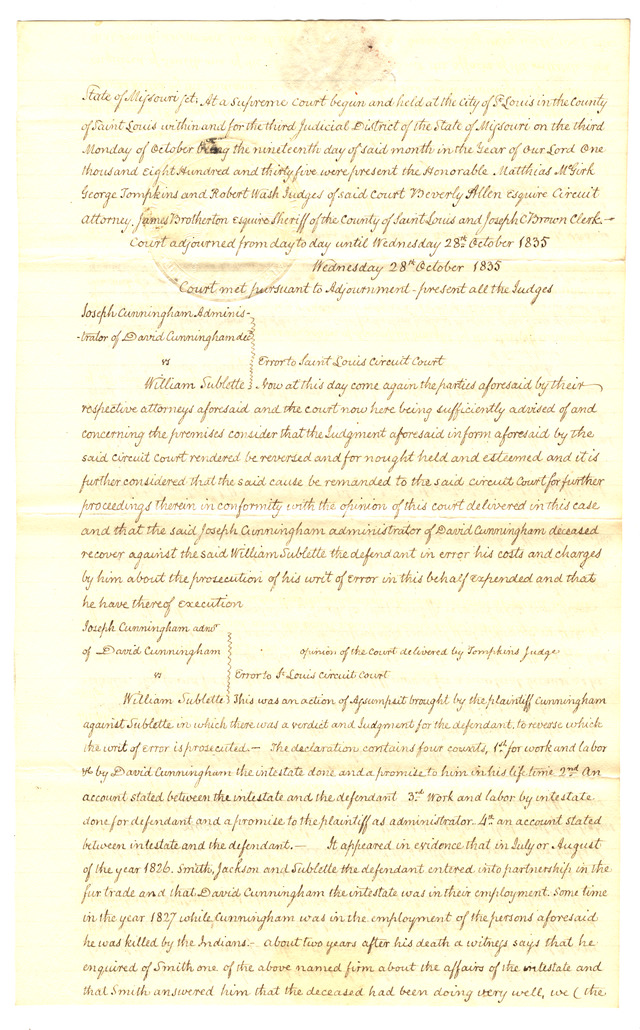 State of Missouri sct: At a Supreme Court begun and held at the City of St Louis in the County
of Saint Louis within and for the third Judicial District of the State of Missouri on the third
Monday of October being the nineteenth day of said month in the Year of Our Lord One
thousand eight Hundred and thirty five were present the Honorable Matthias McGirk
George Tompkins and Robert Wash Judges of said Court Beverly Allen Esquire Circuit
Attorney, James Brotherton Esquire Sheriff of the County of Saint Louis and Joseph C Brown Clerk.—
Court adjourned from day to day until Wednesday 28th October 1835
Wednesday 28th October 1835
Court met pursuant to Adjournment - present all the Judges
Joseph Cunningham Adminis-
-trator of David Cunningham decd
vs Error to Saint Louis Circuit Court
William Sublette Now at this day come again the parties aforesaid by their
respective attorneys aforesaid and the court now here being sufficiently advised of and
concerning the premises consider that the Judgment aforesaid in form aforesaid by the
said circuit court rendered be reversed and for nought held and esteemed and it is
further considered that the said cause be remanded to the said circuit Court for further
proceedings therein in conformity with the opinion of this court delivered in this case
and that the said Joseph Cunningham administrator of David Cunningham deceased
recover against the said William Sublette the defendant in error his costs and charges
by him about the prosecution of his writ of Error in this behalf expended and that
he have thereof execution
Joseph Cunningham admr
of David Cunningham opinion of the Court delivered by Tompkins Judge
vs Error to St Louis Circuit Court
William Sublette This was an action of Assumpsit brought by the plaintiff Cunningham
against Sublette in which there was a verdict and Judgment for the defendant, to reverse which
the writ of error is prosecuted.— The declaration contains four counts, 1st for work and labor
&c by David Cunningham the intestate done and a promise to him in his life time 2nd An
account stated between the intestate and the defendant 3rd Work and labor by intestate
done for defendant and a promise to the plaintiff as administrator 4th an account stated
between intestate and the defendant.— It appeared in evidence that in July or August
of the year 1826. Smith, Jackson and Sublette the defendant entered into partnership in the
fur trade and that David Cunningham the intestate was in their employment. Some time
in the year 1827 while Cunningham was in the employment of the persons aforesaid
he was killed by the Indians.- about two years after his death a witness says that he
enquired of Smith one of the above named firm about the affairs of the intestate and
that Smith answered him that the deceased had been doing very well, we (the